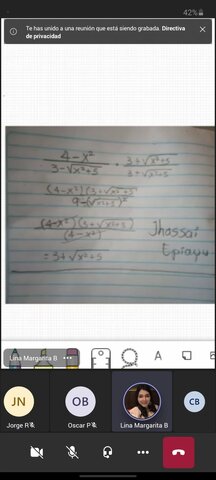 42%
Te has unido a una reunión que está siendo grabada. Directiva de privacidad
4-x² / 3-√x²+5 · 3+√x²+5 / 3+√x²+5
(4-x²)(3+√x²+5) / 9-(√x²+5)²
(4-x²)(3+√x²+5) / (4-x²)
Jhossai
Epiayu
=3+√x²+5
Lina Margarita B
JN
OB
CB
Jorge R
Oscar P
Lina Margarita B